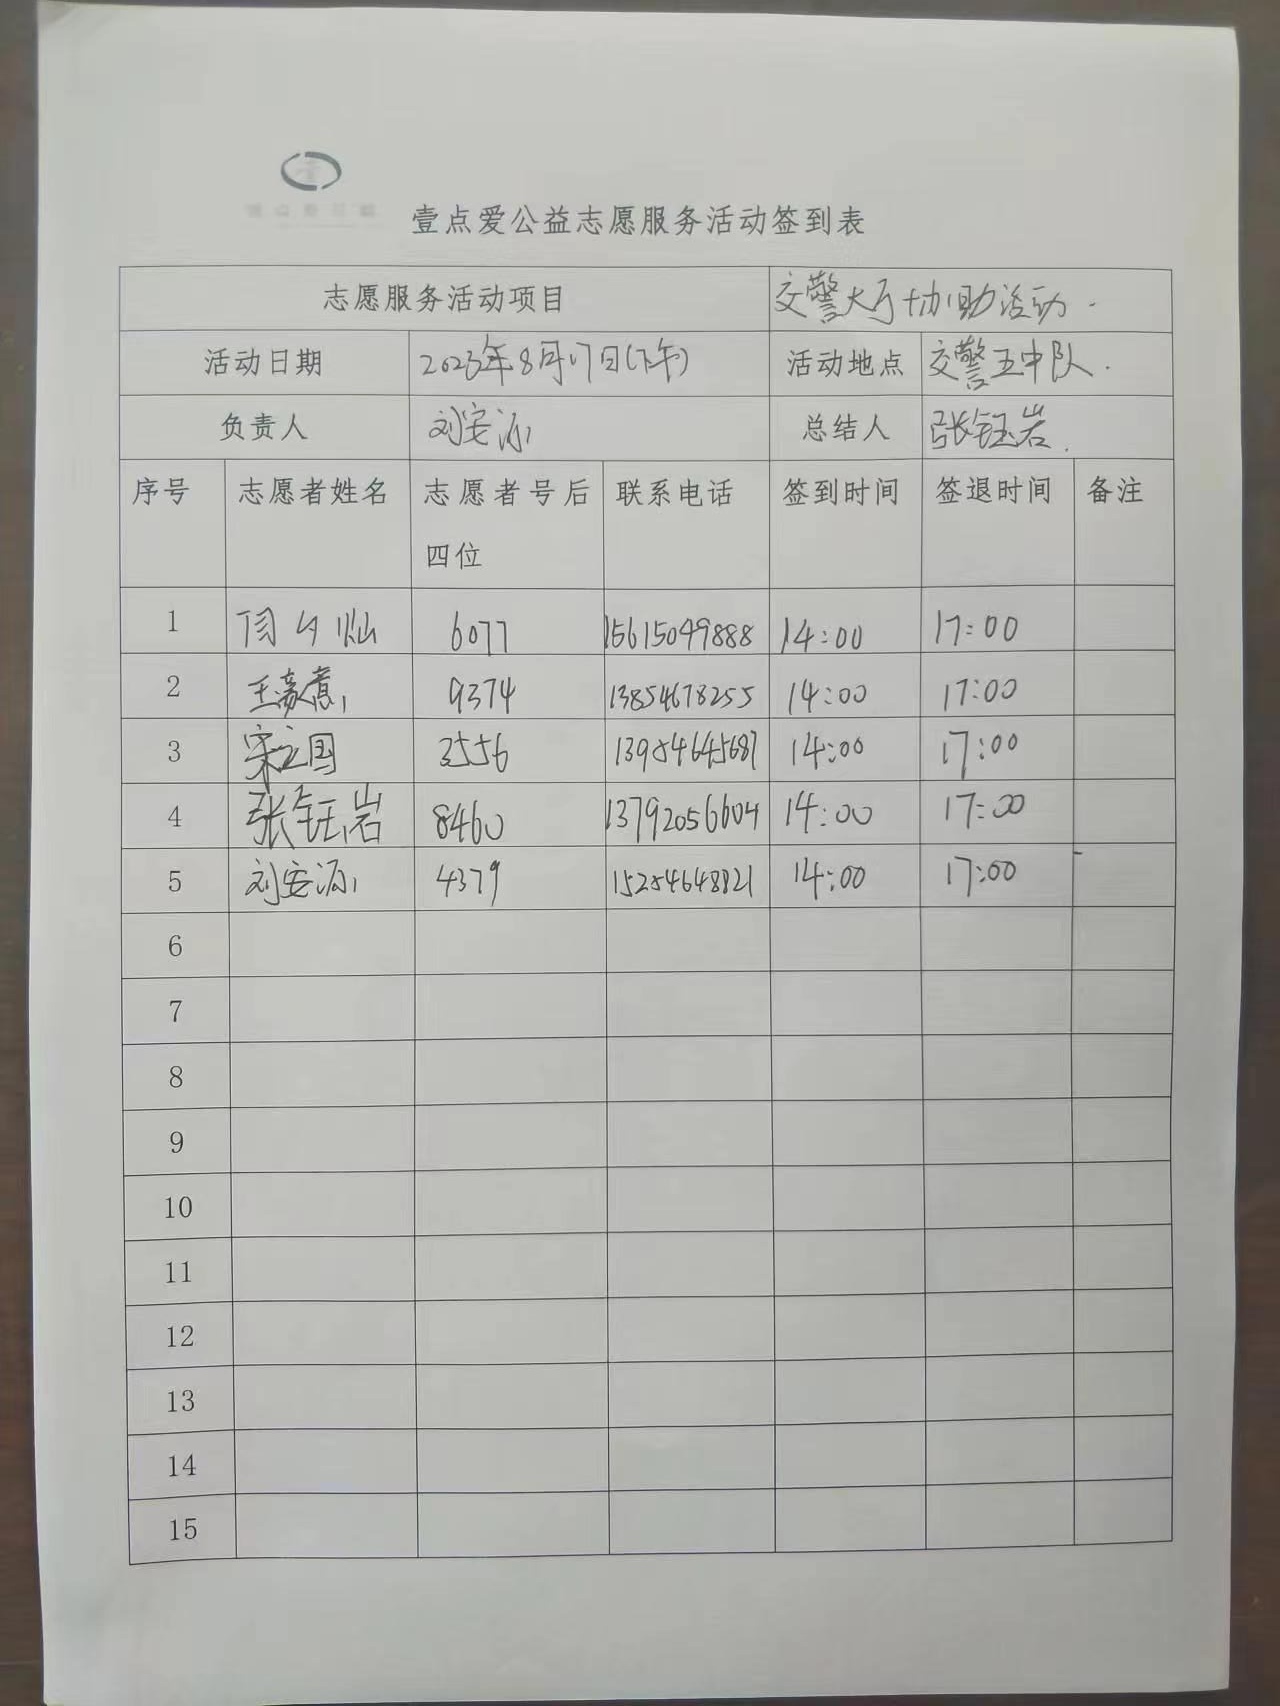 壹点爱公益志愿服务活动签到表
志愿服务活动项目 交警大厅协助活动.
活动日期 2023年8月17日(下午) 活动地点 交警五中队.
负责人 刘安源 总结人 张钰岩.
序号 志愿者姓名 志愿者号后四位 联系电话 签到时间 签退时间 备注
1 6077 15615049888 14:00 17:00
2 王豪意 9374 13854678255 14:00 17:00
3 宋立国 3556 13954645687 14:00 17:00
4 张钰岩 8460 13792056604 14:00 17:00
5 刘安源 4379 15254648821 14:00 17:00
6
7
8
9
10
11
12
13
14
15